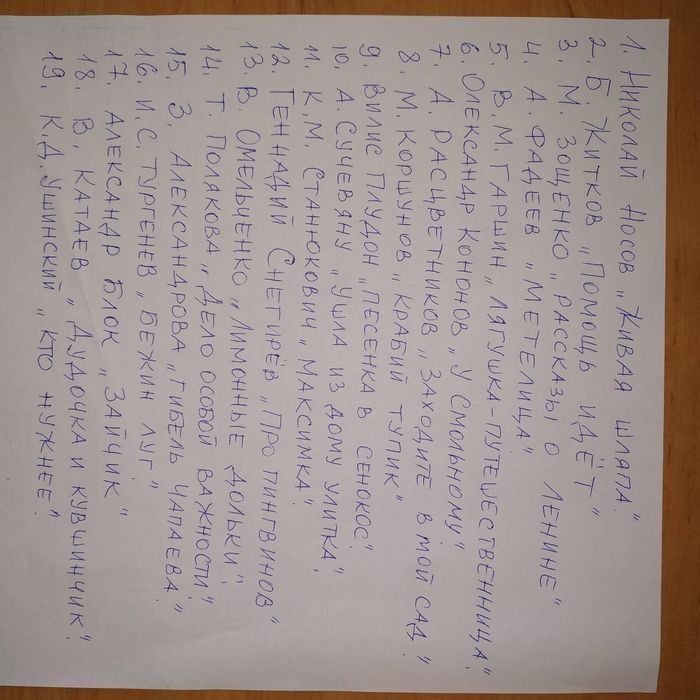 1. Николай Носов „Живая шляпа".
2. Б. Житков „Помощь идёт"
3. М. Зощенко „Рассказы о Ленине"
4. А. Фадеев „Метелица"
5. В.М. Гаршин „Лягушка-путешественница".
6. Олександр Кононов „У Смольному"
7. А. Расцветников „Заходите в мой сад."
8. М. Коршунов „Крабий тупик"
9. Вилис Плудон „Песенка в сенокос".
10. А. Сучевяну „Ушла из дому улитка".
11. К.М. Станюкович „Максимка".
12. Геннадий Снегирёв „Про пингвинов"
13. В. Омельченко „Лимонные дольки".
14. Т. Полякова „Дело особой важности".
15. З. Александрова „Гибель Чапаева."
16. И.С. Тургенев „Бежин луг"
17. Александр Блок „Зайчик"
18. В. Катаев „Дудочка и кувшинчик".
19. К.Д. Ушинский „Кто нужнее".